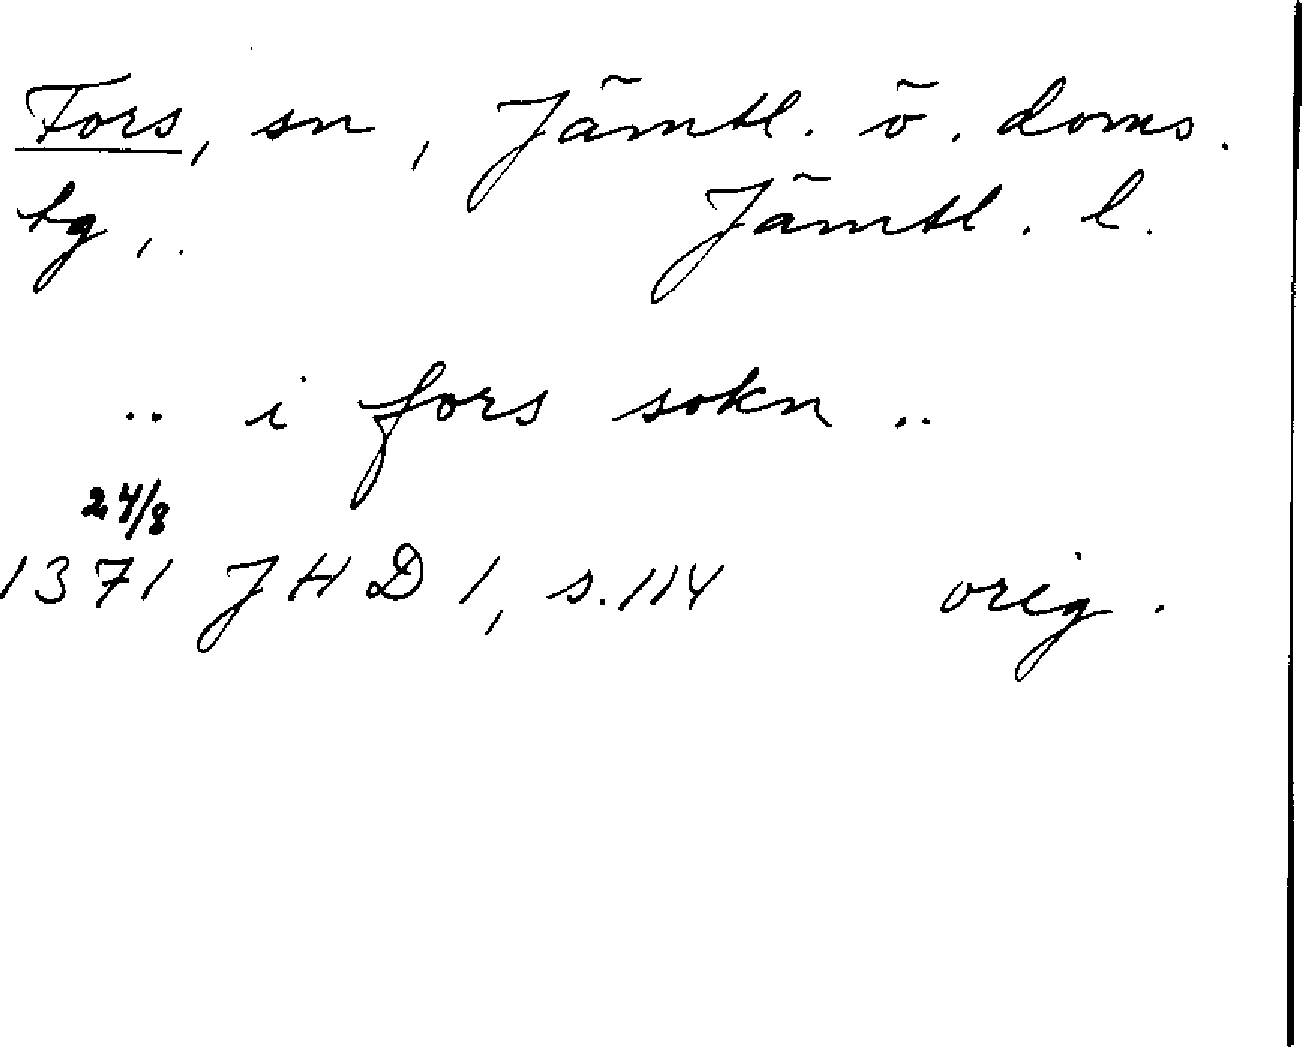 Fors, sn, Jämtl. ö. doms.
tg,. Jämtl. l.
.. i fors sokn ..
24/8
1371 JHD 1, s.114 orig.